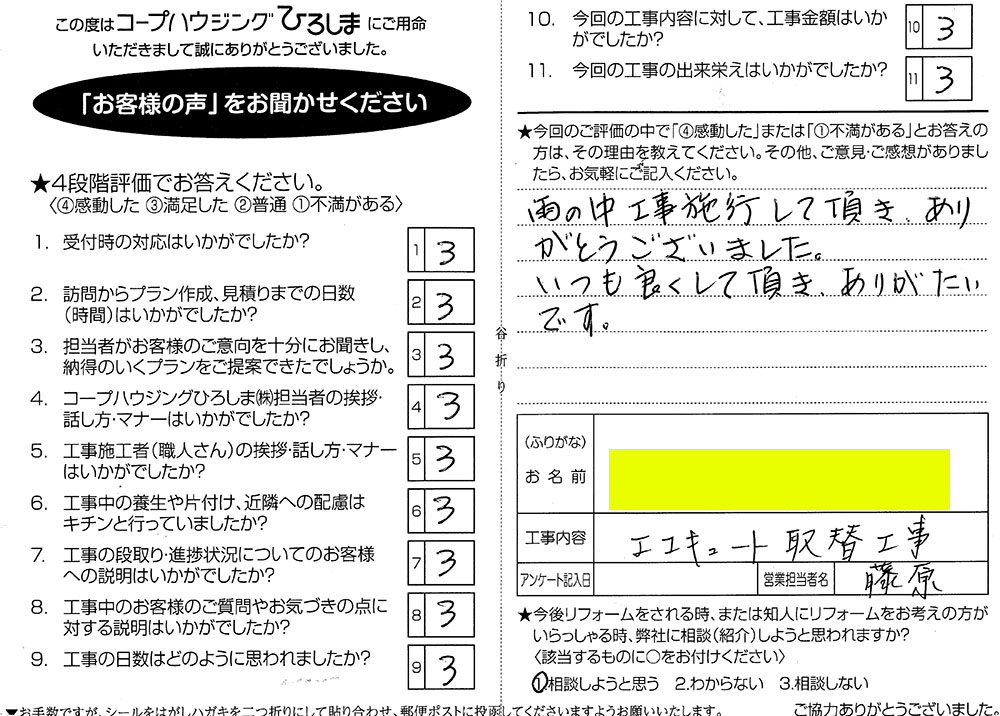 この度はコープハウジングひろしまにご用命
いただきまして誠にありがとうございました。
「お客様の声」をお聞かせください
★4段階評価でお答えください。
〈④感動した ③満足した ②普通 ①不満がある〉
1. 受付時の対応はいかがでしたか?
1 3
2. 訪問からプラン作成、見積りまでの日数
(時間)はいかがでしたか?
2 3
3. 担当者がお客様のご意向を十分にお聞きし、
納得のいくプランをご提案できたでしょうか。
3 3
4. コープハウジングひろしま㈱担当者の挨拶・
話し方・マナーはいかがでしたか?
4 3
5. 工事施工者(職人さん)の挨拶・話し方・マナー
はいかがでしたか?
5 3
6. 工事中の養生や片付け、近隣への配慮は
キチンと行っていましたか?
6 3
7. 工事の段取り・進捗状況についてのお客様
への説明はいかがでしたか?
7 3
8. 工事中のお客様のご質問やお気づきの点に
対する説明はいかがでしたか?
8 3
9. 工事の日数はどのように思われましたか?
9 3
▼お手数ですが、シールをはがしハガキを二つ折りにして貼り合わせ、郵便ポストに投函してくださいますようお願いいたします。
谷折り
10. 今回の工事内容に対して、工事金額はいか
がでしたか?
10 3
11. 今回の工事の出来栄えはいかがでしたか?
11 3
★今回のご評価の中で「④感動した」または「①不満がある」とお答えの
方は、その理由を教えてください。その他、ご意見・ご感想がありまし
たら、お気軽にご記入ください。
雨の中工事施行して頂き、あり
がとうございました。
いつも良くして頂き、ありがたい
です。
(ふりがな)
お名前
工事内容 エコキュート取替工事
アンケート記入日 営業担当者名 藤原
★今後リフォームをされる時、または知人にリフォームをお考えの方が
いらっしゃる時、弊社に相談(紹介)しようと思われますか?
〈該当するものに○をお付けください〉
①相談しようと思う 2.わからない 3.相談しない
ご協力ありがとうございました。